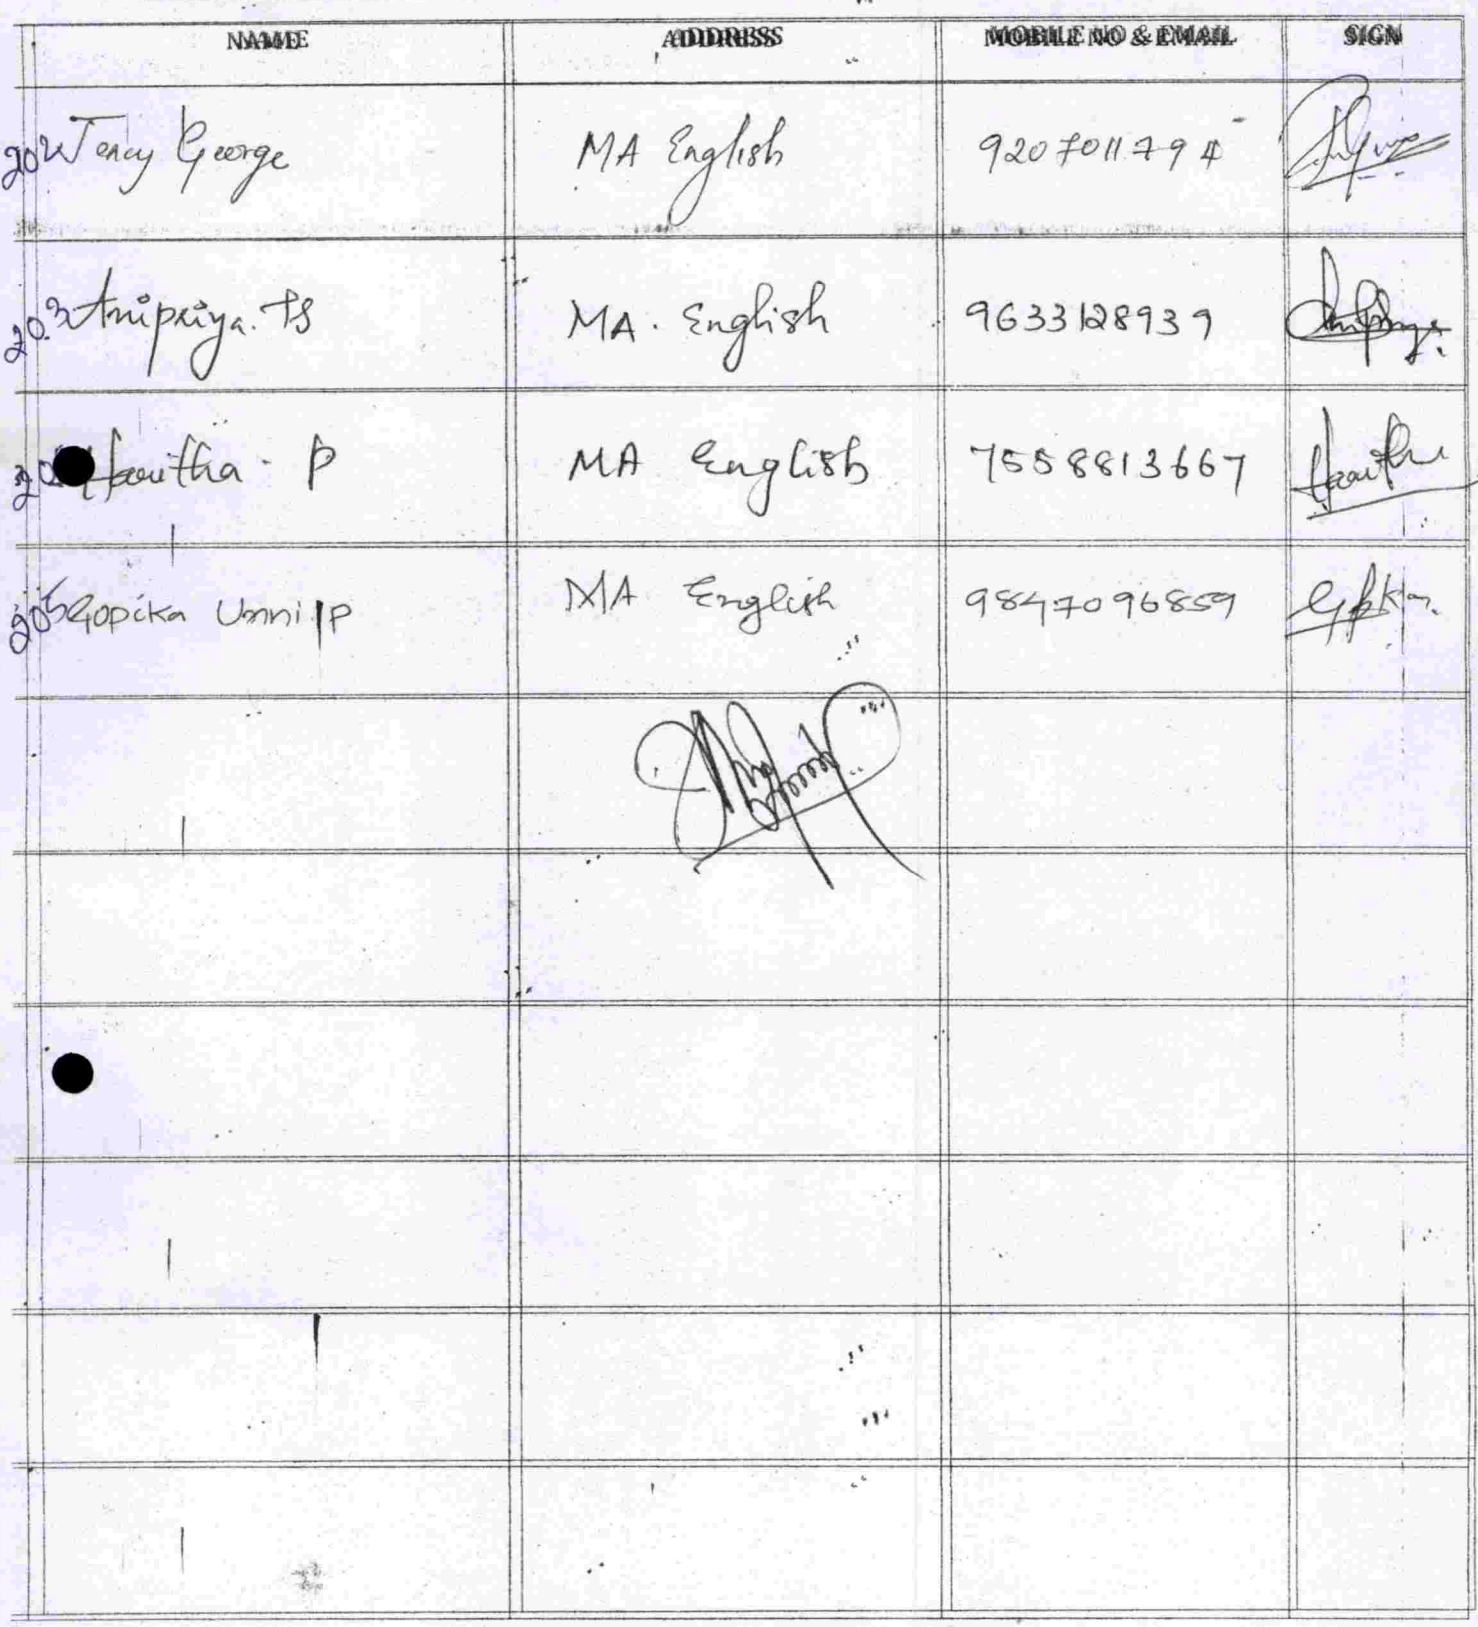 NAME ADDRESS MOBILE NO & EMAIL SIGN
202 Jency George MA English 9207011794
203 Anipriya. TS MA. English 9633128939
Haritha. P MA English 7558813667 Haritha
205 Gopika Unni P MA English 9847096859